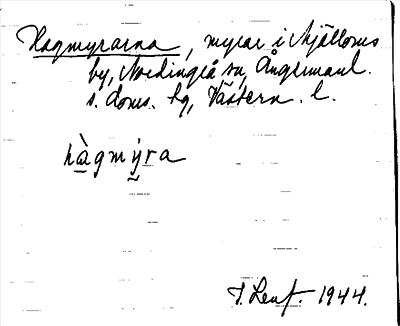 Hagmyrarna, myrar i Mjälloms
by, Nordingrå sn, Ångermanl.
s. doms. hg, Västern. l.
hàgmýra
1944.